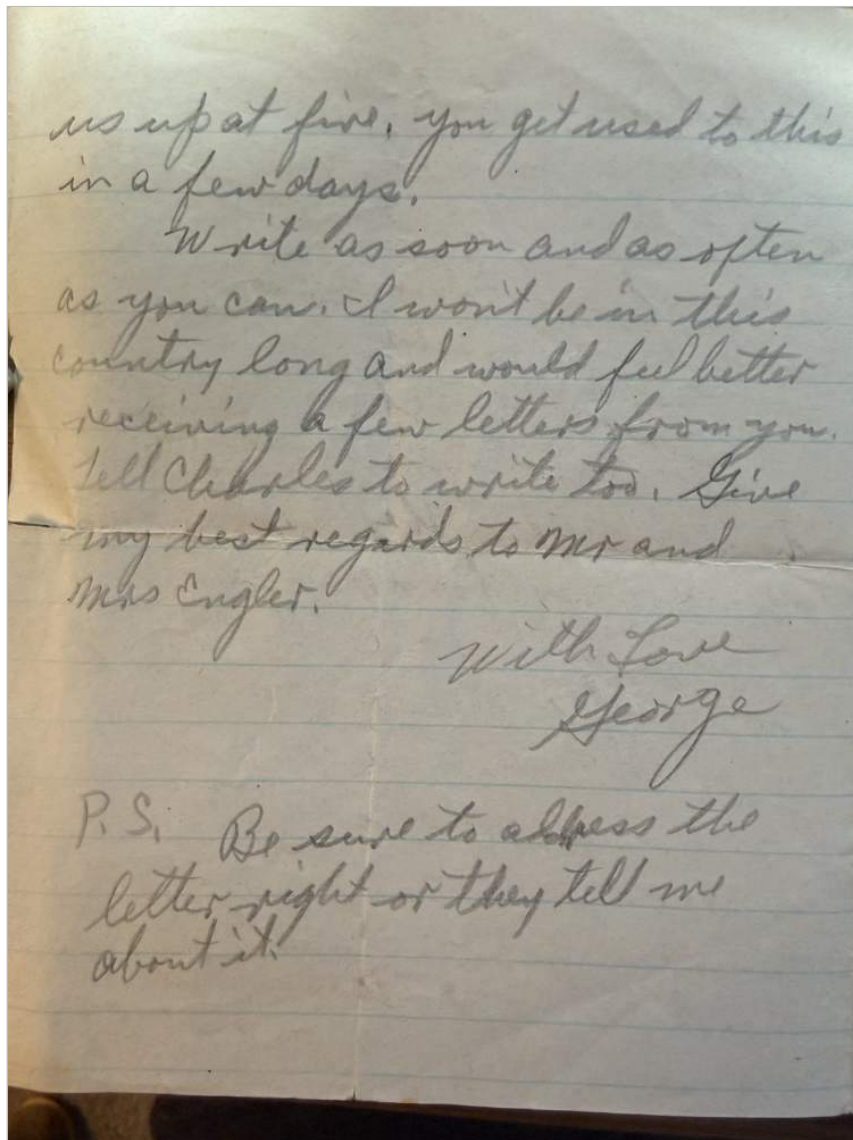 us up at five, you get used to this
in a few days.
Write as soon and as often
as you can. I won't be in this
country long and would feel better
receiving a few letters from you.
Tell Charles to write too. Give
my best regards to Mr and
Mrs Engler.
With Love
George
P.S. Be sure to address the
letter right or they tell me
about it.